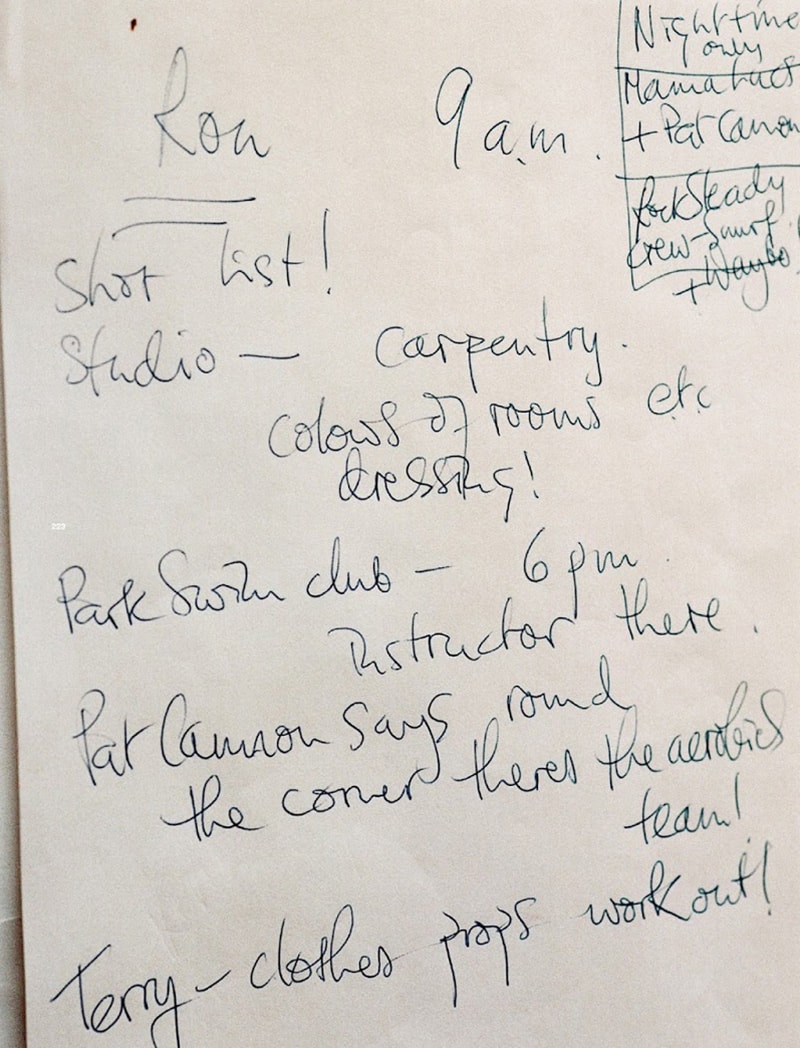 Ron
9 a.m.
Nighttime
only
+ Pat Cannon
Rock Steady
Crew - Smurf
+ Waybo
Shot List!
Studio — Carpentry.
Colours of rooms etc
dressing!
223
Park Swim club — 6 pm
Instructor there.
Pat Cannon says round
the corner theres the aerobics
team!
Terry - clothes props workout!